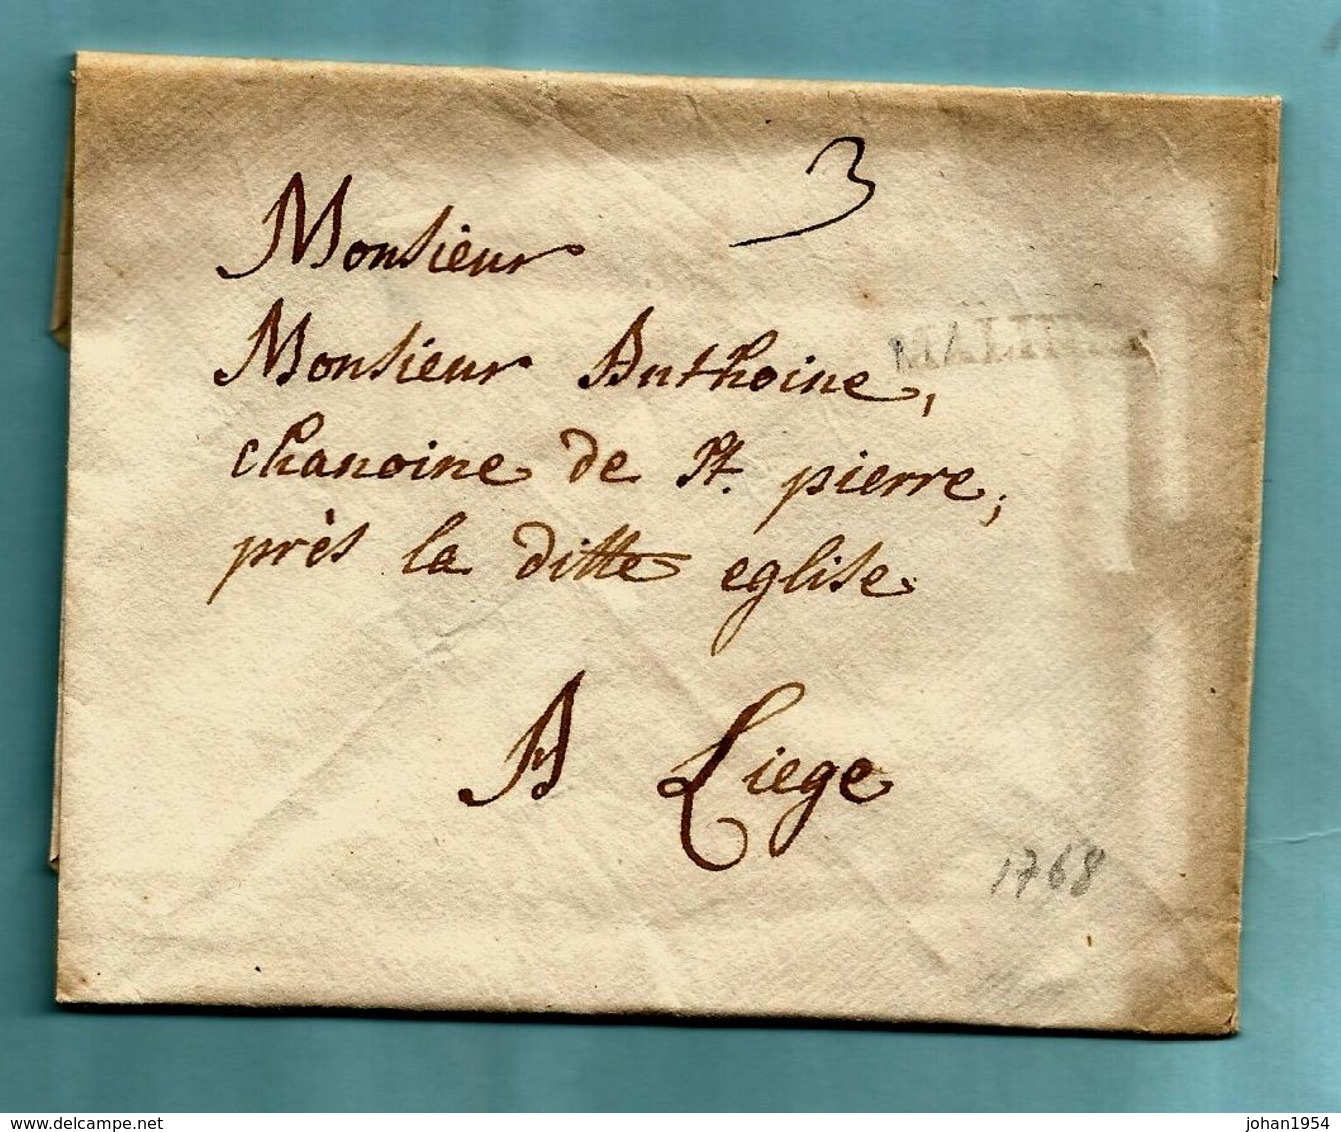 3
Monsieur
Monsieur Anthoine,
chanoine de St. pierre,
près la ditte eglise
A Liege
1768
www.delcampe.net
johan1954